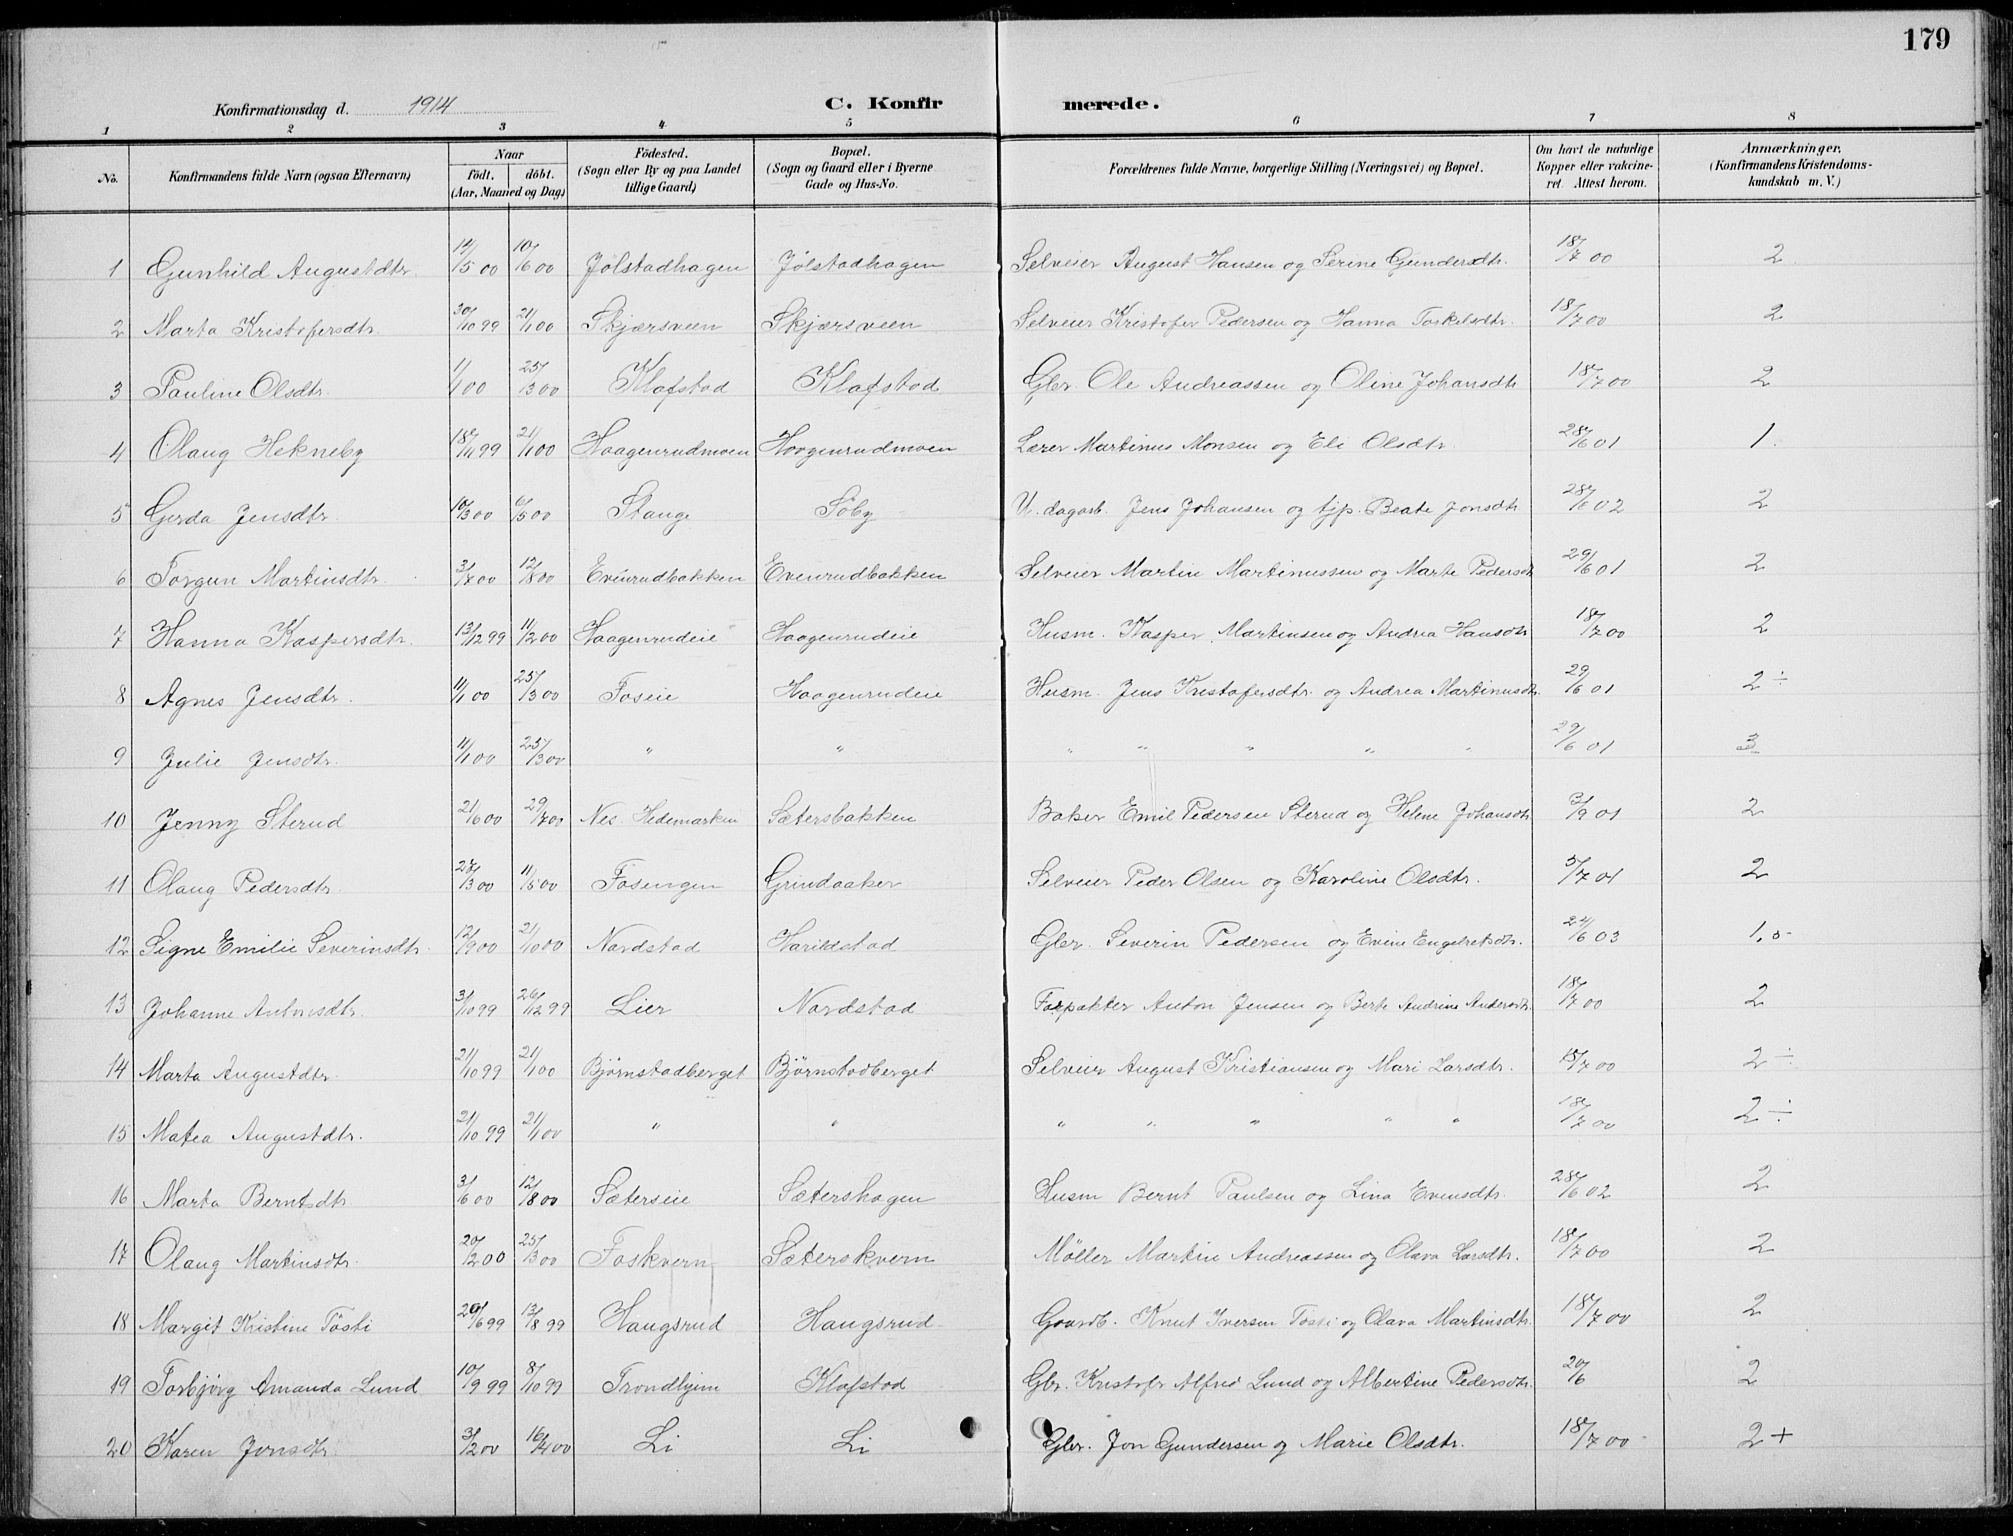 179
Konfirmationsdag d. 1914 C. Konfir merede.
1 2 3 4 5 6 7 8
No. Konfirmandens fulde Navn (ogsaa Efternavn) Naar født. døbt. (Aar, Maaned og Dag) Födested. (Sogn eller By og paa Landet tillige Gaard) Bopæl. (Sogn og Gaard eller i Byerne Gade og Hus-No. Forældrenes fulde Navne, borgerlige Stilling (Næringsvei) og Bopæl. Om havt de naturlige Kopper eller vakcineret. Attest herom. Anmærkninger. (Konfirmandens Kristendomskundskab m. V.)
1 Gunhild Augustdtr. 12/5 00 10/6 00 Jølstadhagen Jølstadhagen Selveier August Hansen og Serine Gundersdtr. 18/7 00 2
2 Marta Kristofersdtr. 30/10 99 21/1 00 Skjærsveen Skjærsveen Selveier Kristofer Pedersen og Hanna Torkelsdtr. 18/7 00 2
3 Pauline Olsdtr. 1/1 00 25/3 00 Klafstad Klafstad Gbr. Ole Andreassen og Oline Johansdtr 18/7 00 2
4 Olaug Hekneby 18/11 99 21/1 00 Haagenrudmoen Haagenrudmoen Lærer Martinus Monsen og Eli Olsdtr. 28/6 01 1.
5 Gerda Jensdtr. 10/3 00 6/5 00 Stange Søby U. dagarb. Jens Johansen og tjp. Beate Jonsdtr 28/6 02 2
6 Torgun Martinsdtr. 3/7 00 12/8 00 Evenrudbakken Evenrudbakken Selveier Martin Martinussen og Marte Pedersdtr 29/6 01 2
7 Hanna Kaspersdtr. 13/12 99 11/2 00 Haagenrudeie Haagenrudeie Husm. Kasper Martinsen og Andrea Hansdtr 18/7 00 2
8 Agnes Jensdtr. 11/1 00 25/3 00 Foseie Haagenrudeie Husm. Jens Kristofersdtr. og Andrea Martinusdtr. 29/6 01 2÷
9 Julie Jensdtr. 11/1 00 25/3 00 " " " " " " " 29/6 01 3
10 Jenny Sterud 21/6 00 29/7 00 Nes. Hedemarken Sætersbakken Baker Emil Pedersen Sterud og Helene Johansdtr. 3/9 01 2
11 Olaug Pedersdtr. 27/3 00 11/5 00 Fosengen Grindaaker Selveier Peder Olsen og Karoline Olsdtr. 5/7 01 2
12 Signe Emilie Severinsdtr. 12/9 00 21/10 00 Nordstad Harildstad Gbr. Severin Pedersen og Evine Engebretsdtr. 24/6 03 1,5
13 Johanne Antonsdtr. 3/10 99 26/12 99 Lier Nordstad Forpakter Anton Jensen og Berte Andrine Andersdtr. 18/7 00 2
14 Marta Augustdtr. 21/10 99 21/1 00 Bjørnstadberget Bjørnstadberget Selveier August Kristiansen og Mari Larsdtr. 18/7 00 2÷
15 Matea Augustdtr. 21/10 99 21/1 00 " " " " " " " 18/7 00 2÷
16 Marta Berntsdtr 3/6 00 12/8 00 Sæterseie Sætershagen Husm Bernt Paulsen og Lina Evensdtr. 28/6 02 2
17 Olaug Martinsdtr. 20/2 00 25/3 00 Foskvern Sæterskvern Møller Martin Andreassen og Olava Larsdtr. 18/7 00 2
18 Margit Kristine Tøsti 29/6 99 13/8 99 Haugsrud Haugsrud Gaardb. Knut Iversen Tøsti og Olava Martinsdtr. 18/7 00 2
19 Torbjørg Amanda Lund 10/9 99 8/10 99 Trondhjem Klafstad Gbr. Kristofer Alfred Lund og Albertine Pedersdtr. 20/6 2
20 Karen Jonsdtr. 3/2 00 16/4 00 Li Li Gbr. Jon Gundersen og Marie Olsdtr. 18/7 00 2+